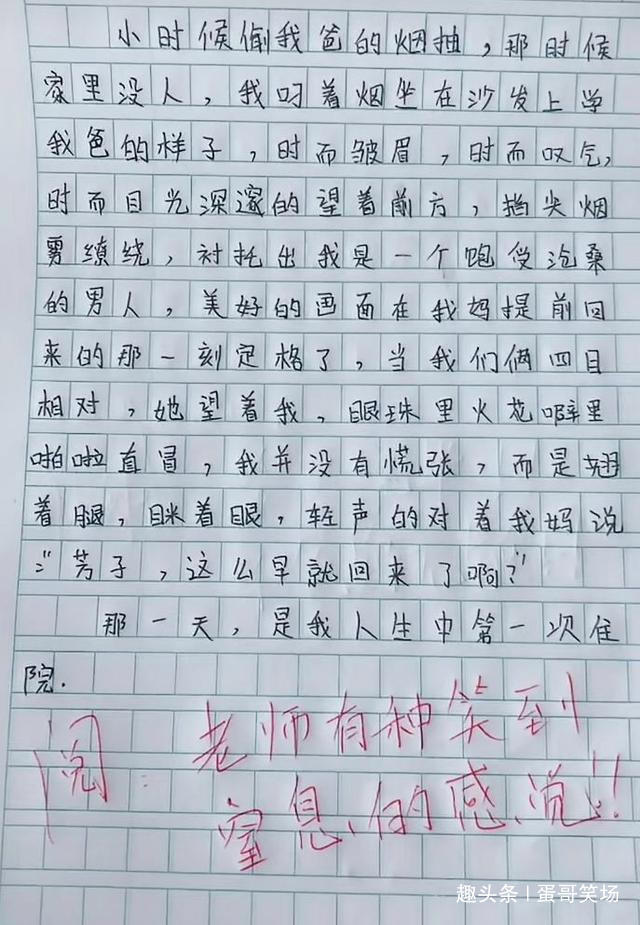 小时候偷我爸的烟抽，那时候
家里没人，我叼着烟坐在沙发上学
我爸的样子，时而皱眉，时而叹气，
时而目光深邃的望着前方，指尖烟
雾缭绕，衬托出我是一个饱受沧桑
的男人，美好的画面在我妈提前回
来的那一刻定格了，当我们俩四目
相对，她望着我，眼珠里火花噼里
啪啦直冒，我并没有慌张，而是翘
着腿，眯着眼，轻声的对着我妈说
:“芳子，这么早就回来了啊？”
那一天，是我人生中第一次住
院.
阅：老师有种笑到
窒息的感觉!!
趣头条 | 蛋哥笑场